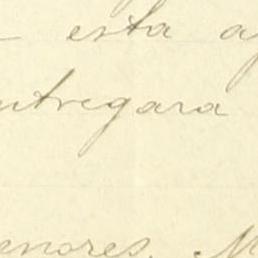 esta a
ntregara
enores. M